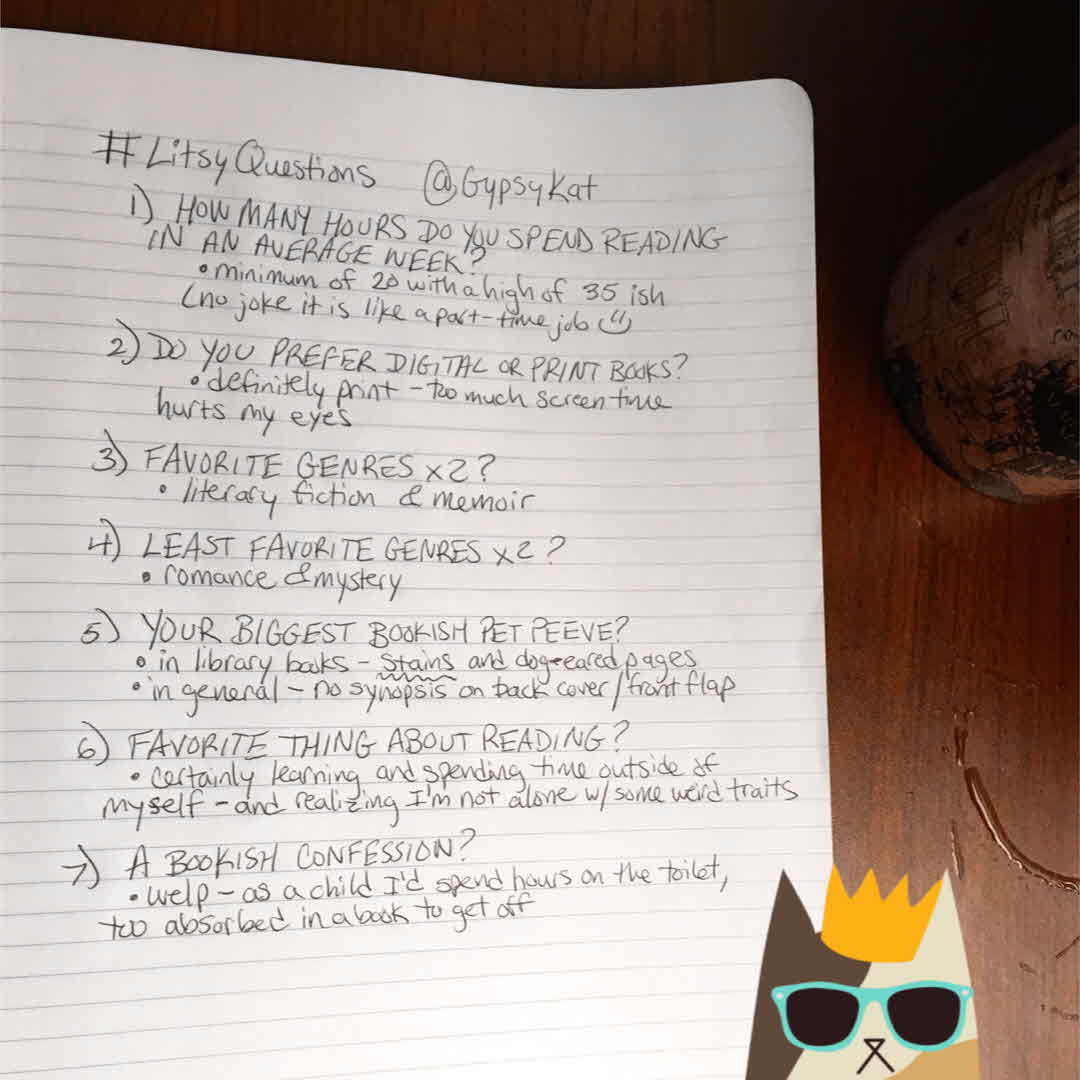 #LitsyQuestions @GypsyKat
1) HOW MANY HOURS DO YOU SPEND READING
IN AN AVERAGE WEEK?
• minimum of 20 with a high of 35 ish
(no joke it is like a part-time job
2) DO YOU PREFER DIGITAL OR PRINT BOOKS?
• definitely print - too much screen time
hurts my eyes
3) FAVORITE GENRES x2?
• literary fiction & memoir
4) LEAST FAVORITE GENRES x2?
• romance & mystery
5) YOUR BIGGEST BOOKISH PET PEEVE?
• in library books - stains and dog-eared pages
• in general - no synopsis on back cover/front flap
6) FAVORITE THING ABOUT READING?
• certainly learning and spending time outside of
myself - and realizing I'm not alone w/ some weird traits
7) A BOOKISH CONFESSION?
• welp - as a child I'd spend hours on the toilet,
too absorbed in a book to get off